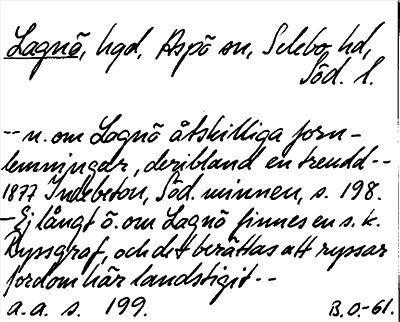 Lagnö, hgd, Aspö sn, Selebo hd,
Söd. l.
-- n. om Lagnö åtskilliga forn-
lemningar, deribland en treudd --
1877 Indebetou, Söd. minnen, s. 198.
-- Ej långt ö. om Lagnö finnes en s. k.
Ryssgraf, och det berättas att ryssar
fordom här landstigit --
a. a. s. 199.
B.O.-61.